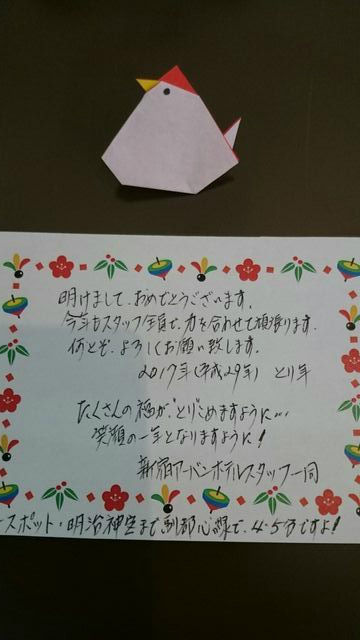 明けまして、おめでとうございます。
今年もスタッフ全員で、力を合わせて頑張ります。
何とぞ、よろしくお願い致します。
2017年(平成29年) とり年
たくさんの福が"とり"こめますように…
笑顔の一年となりますように!
新宿アーバンホテルスタッフ一同
スポット・明治神宮まで副都心線で、4.5分ですよ!